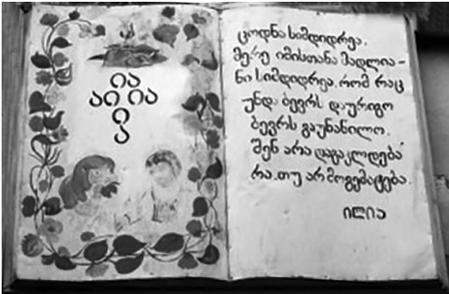 ია
აი ია
ი
ა
ცოდნა სიმდიდრეა,
მერე იმისთანა მადლია-
ნი სიმდიდრეა, რომ რაც
უნდა ბევრს დაურიგო
ბევრს გაუნაწილო.
შენ არა დაგაკლდება
რა, თუ არ მოგემატება.
ილია